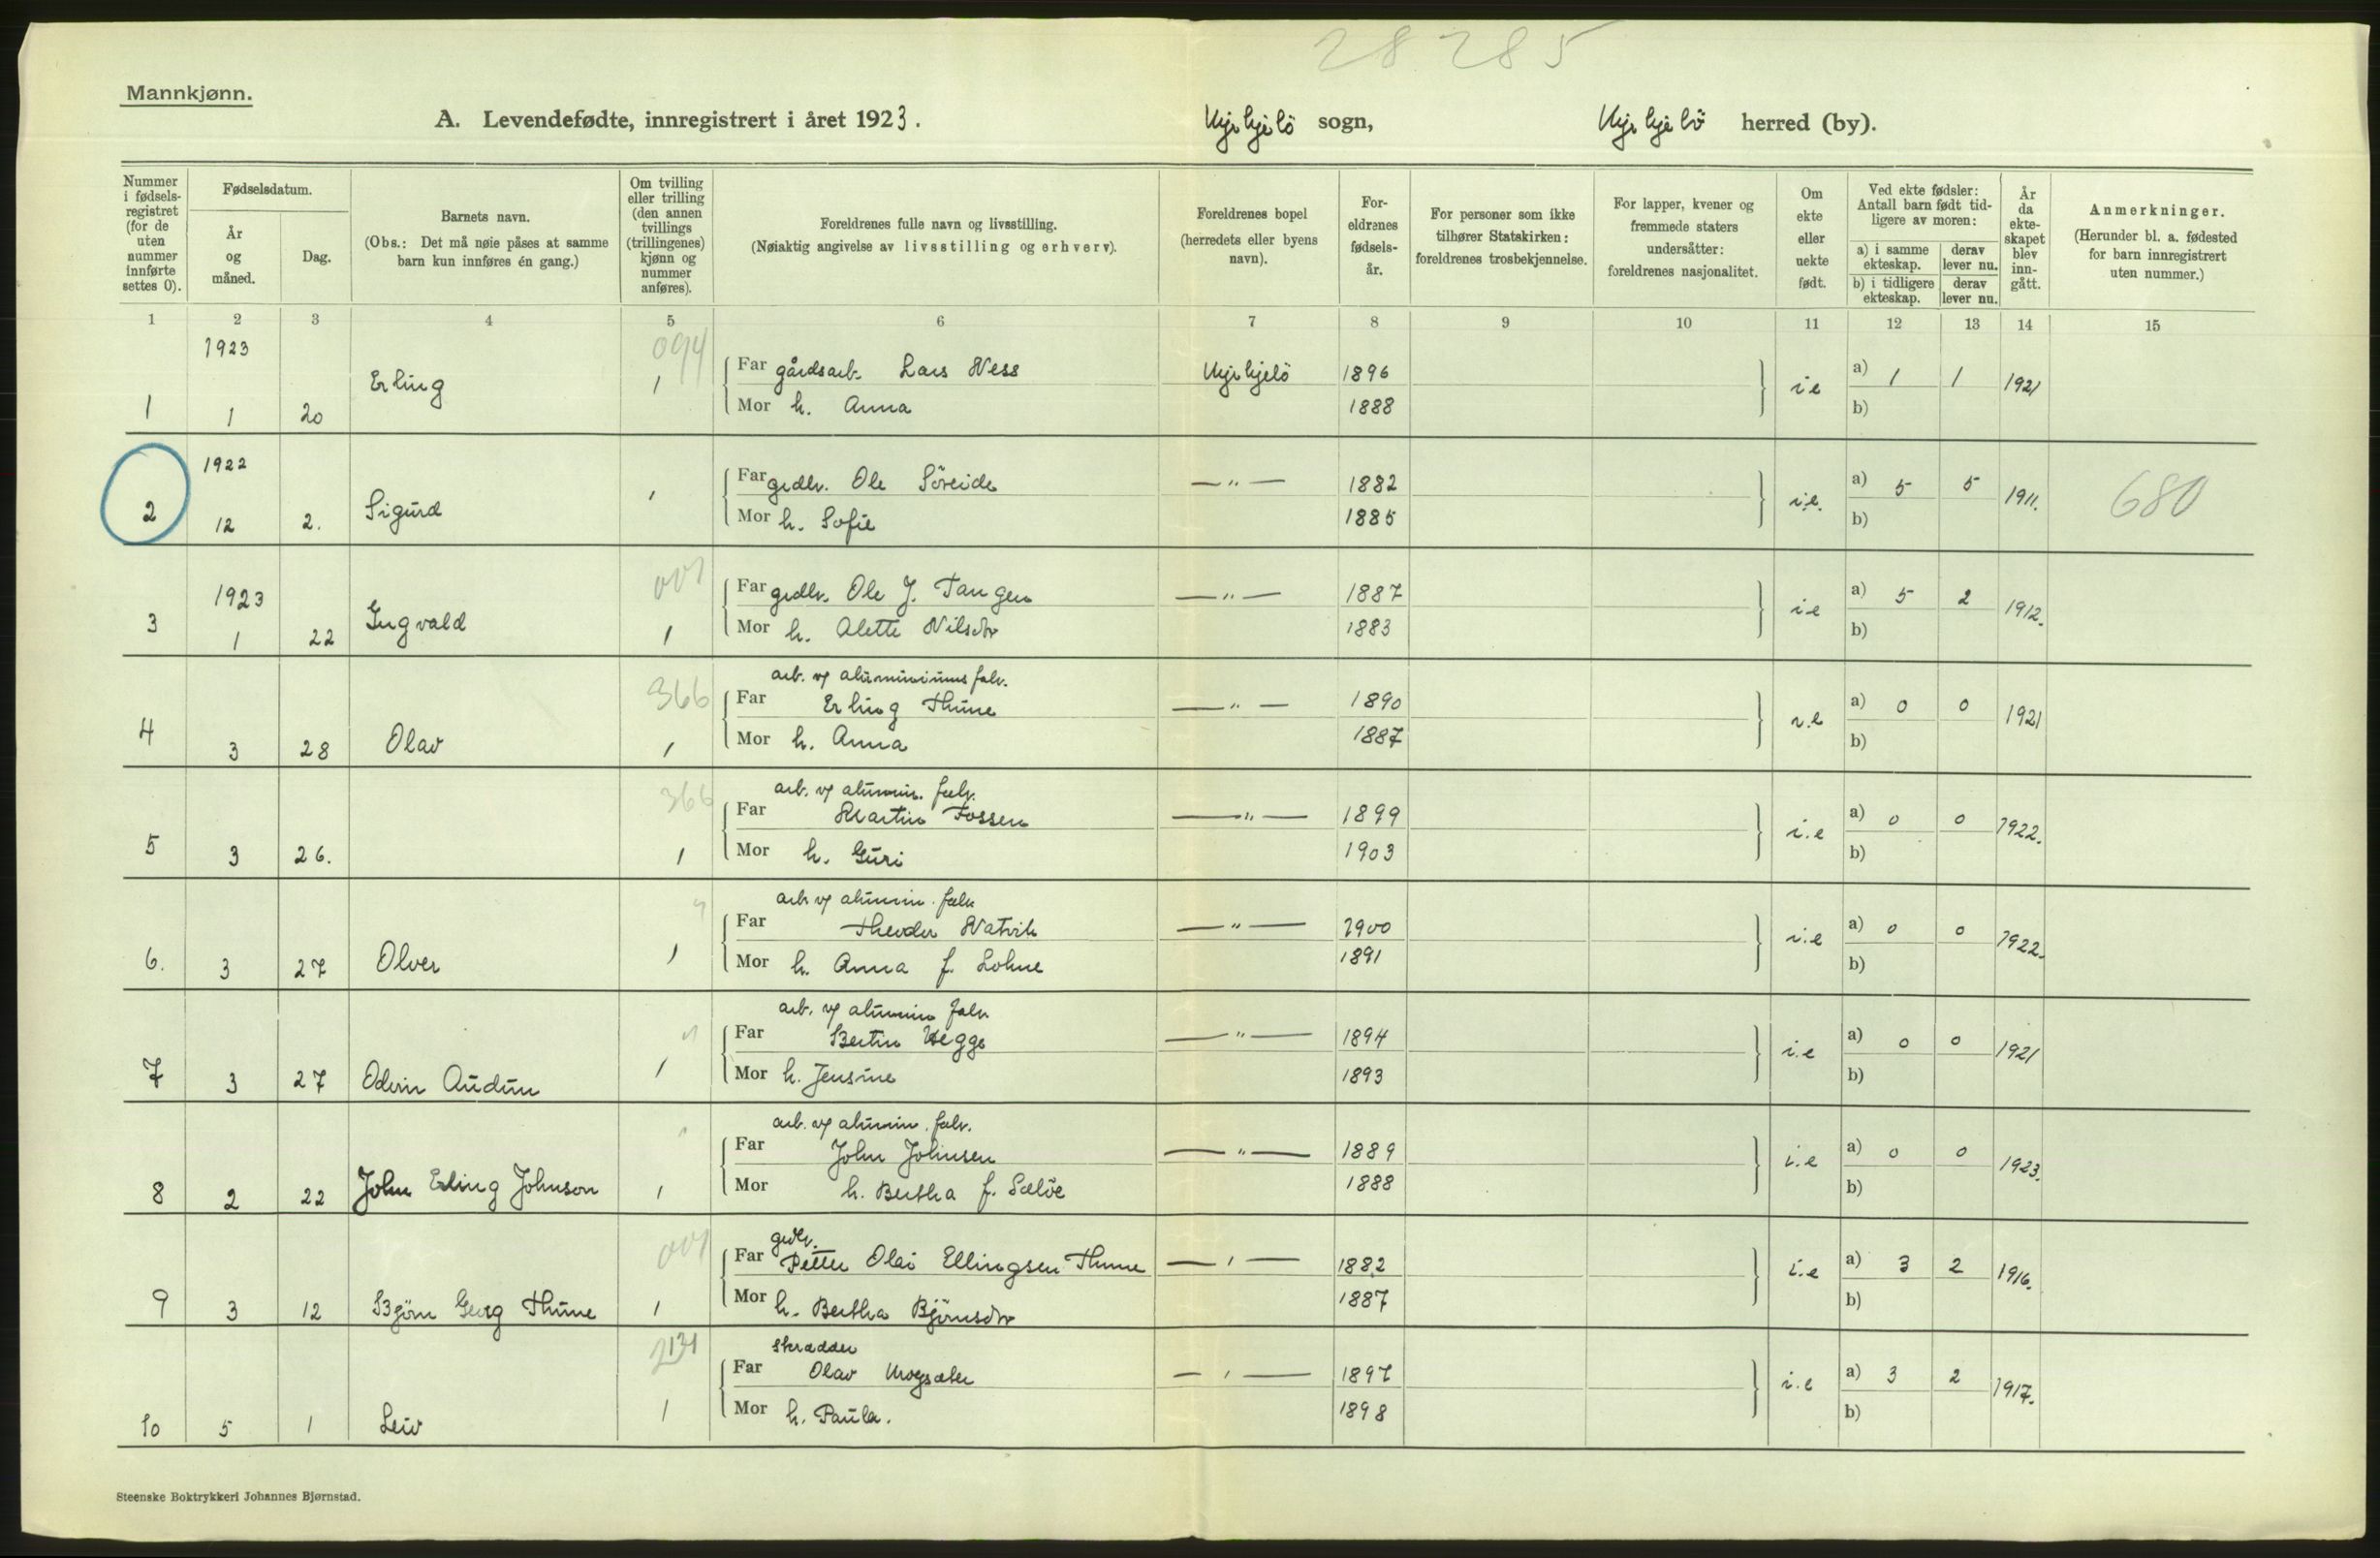 28285
Mannkjønn.
A. Levendefødte, innregistrert i året 1923. Kyrkjebö sogn, Kyrkjebö herred (by).
Nummer i fødsels-registret (for de uten nummer innførte settes 0).
Fødselsdatum.
År og måned.
Dag.
Barnets navn.
(Obs.: Det må nøie påses at samme barn kun innføres én gang.)
Om tvilling eller trilling (den annen tvillings (trillingenes) kjønn og nummer anføres).
Foreldrenes fulle navn og livsstilling.
(Nøiaktig angivelse av livsstilling og erhverv).
Foreldrenes bopel (herredets eller byens navn).
For-eldrenes fødsels-år.
For personer som ikke tilhører Statskirken: foreldrenes trosbekjennelse.
For lapper, kvener og fremmede staters undersåtter: foreldrenes nasjonalitet.
Om ekte eller uekte født.
Ved ekte fødsler: Antall barn født tid-ligere av moren:
a) i samme ekteskap. derav lever nu.
b) i tidligere ekteskap. derav lever nu.
År da ekte-skapet blev inn-gått.
Anmerkninger.
(Herunder bl. a. fødested for barn innregistrert uten nummer.)
1 2 3 4 5 6 7 8 9 10 11 12 13 14 15
1923 094
Far gårdsarb. Lars Ness Kyrkjebö 1896 a) 1 1
1 1 20 Erling 1 Mor h. Anna 1888 i e b) 1921
1922
Far grdbr. Ole Söreide — " — 1882 a) 5 5
2 12 2. Sigurd 1 Mor h. Sofie 1885 i.e. b) 1911. 680
1923 001
Far grdbr. Ole J. Tangen — " — 1887 a) 5 2
3 1 22 Ingvald 1 Mor h. Alette Nilsdtr 1883 i e b) 1912.
366 arb. v/ aluminiumsfabr.
Far Erling Thune — " — 1890 a) 0 0
4 3 28 Olav 1 Mor h. Anna 1887 i.e b) 1921
366 arb. v/ alumin. fabr.
Far Martin Fossen — " — 1899 a) 0 0
5 3 26. 1 Mor h. Guri 1903 i.e b) 1922.
" arb v/ alumin. fabr
Far Theodor Natvik — " — 1900 a) 0 0
6. 3 27 Olver 1 Mor h. Anna f. Lohne 1891 i.e b) 1922.
" arb. v/ alumin fabr.
Far Bertin Vegge — " — 1894 a) 0 0
7 3 27 Odvin Audun 1 Mor h. Jensine 1893 i.e b) 1921
" arb. v/ alumin. fabr.
Far John Johnsen — " — 1889 a) 0 0
8 2 22 John Erling Johnson 1 Mor h. Bertha f. Solöe 1888 i.e b) 1923.
001 grdbr.
Far Petter Olai Ellingsen Thune — " — 1882 a) 3 2
9 3 12 Björn Georg Thune 1 Mor h. Bertha Björnsdtr 1887 i.e b) 1916.
skrædder
Far Olav — " — 1897 a) 3 2
10 5 1 Leiv 1 Mor h. Paula. 1898 i.e b) 1917.
Steenske Boktrykkeri Johannes Bjørnstad.